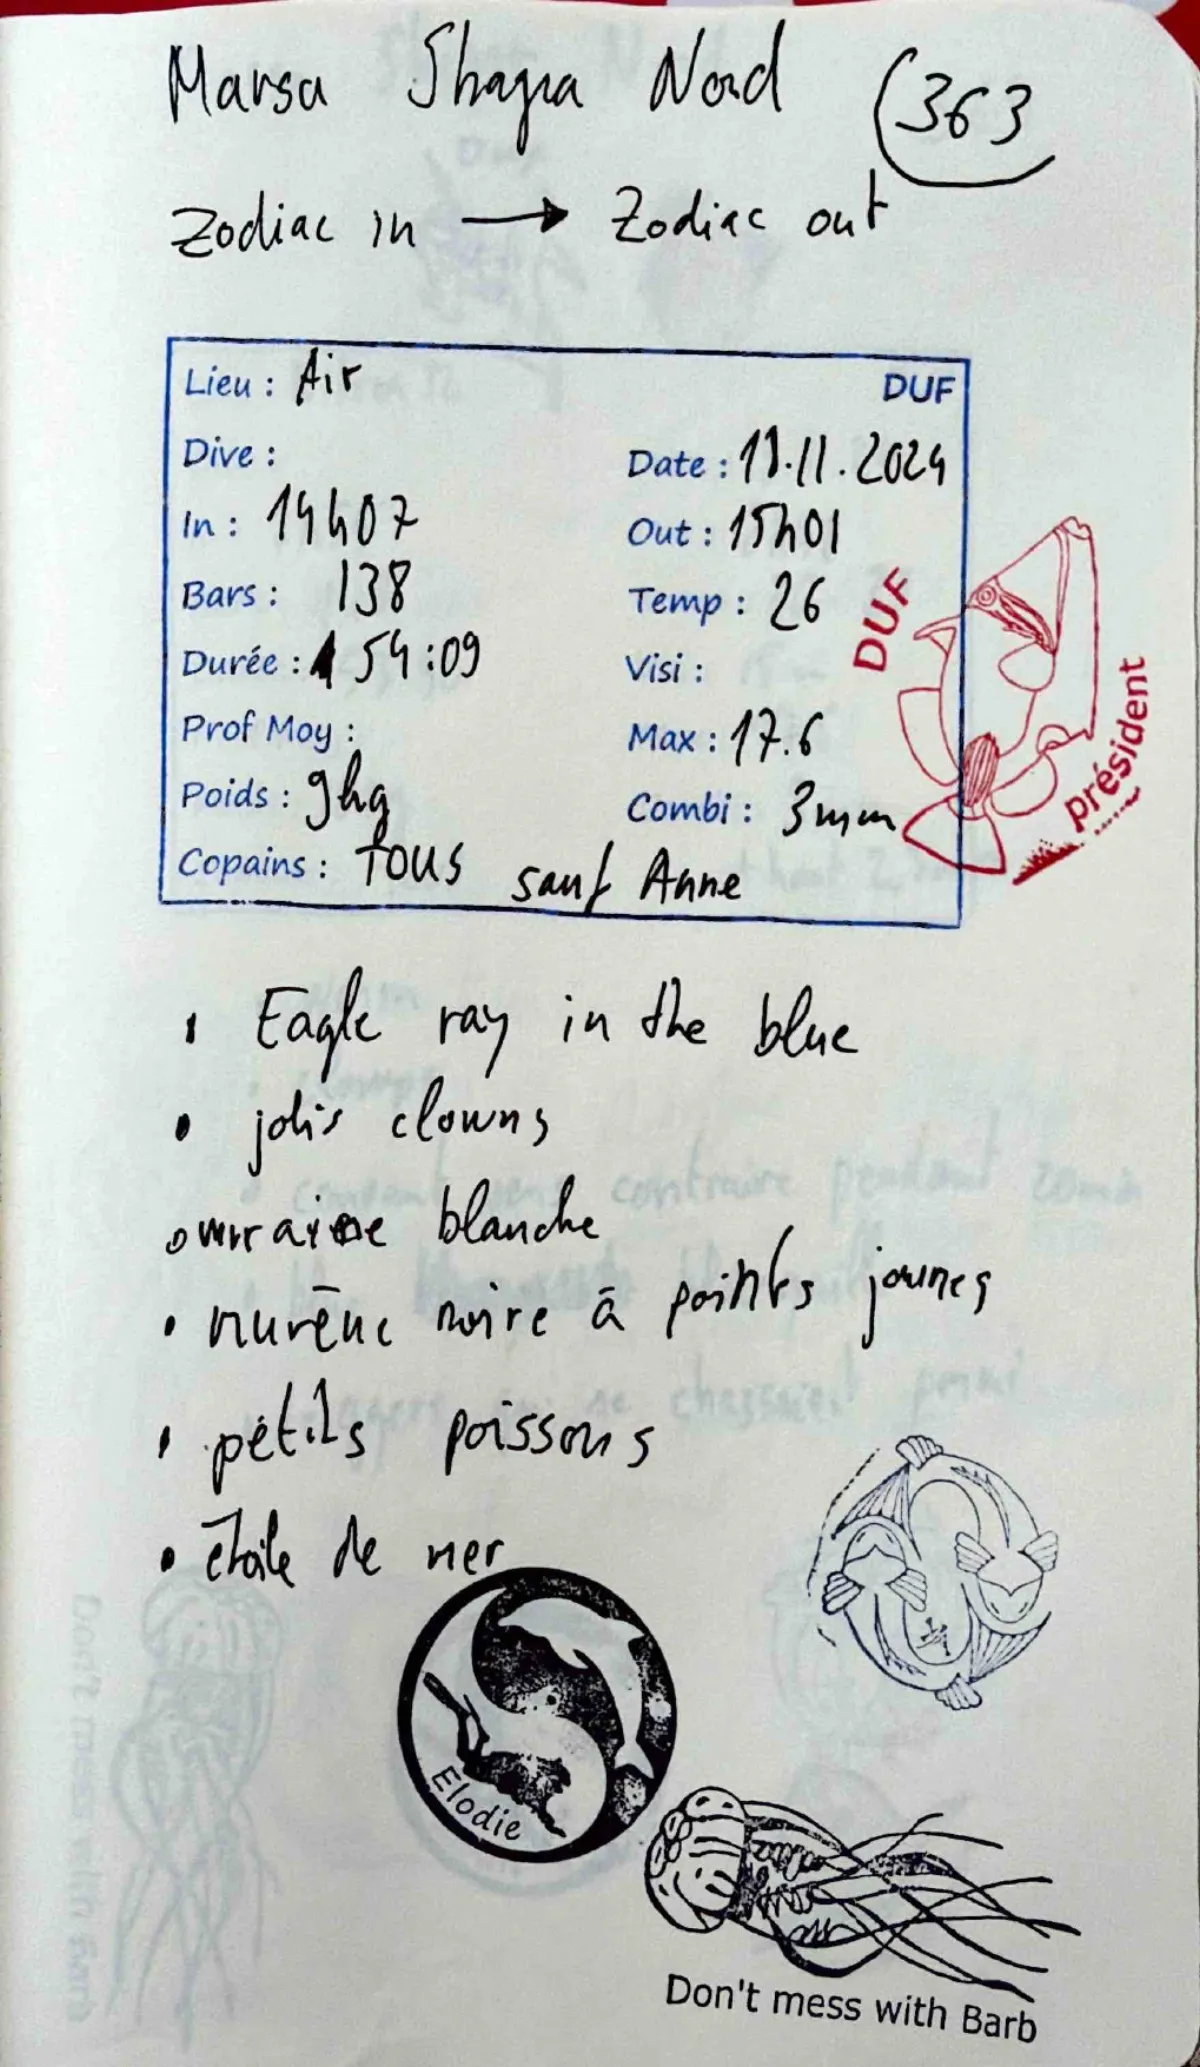 Marsa Shagra Nord 363
Zodiac in → Zodiac out
Lieu : Air DUF
Dive : Date : 11.11.2024
In : 14h07 Out : 15h01
Bars : 138 Temp : 26
Durée : 54:09 Visi :
Prof Moy : Max : 17.6
Poids : 9kg Combi : 3mm
Copains : TOUS sauf Anne
DUF
président
• Eagle ray in the blue
• jolis clowns
blanche
• murène noire à points jaunes
• petits poissons
• étoile de mer
Elodie
Don't mess with Barb